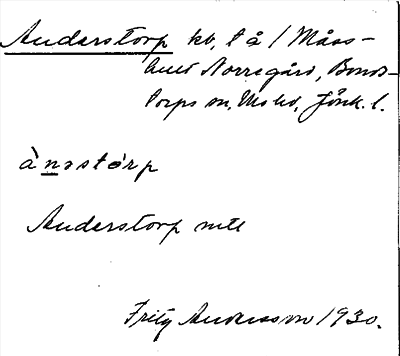 Anderstorp kb, t å / Måns-
hult Norregård, Bonds-
torps sn, Mo hd, Jönk. l.
ànəstórp
Anderstorp mtl
Fritz Andersson 1930.